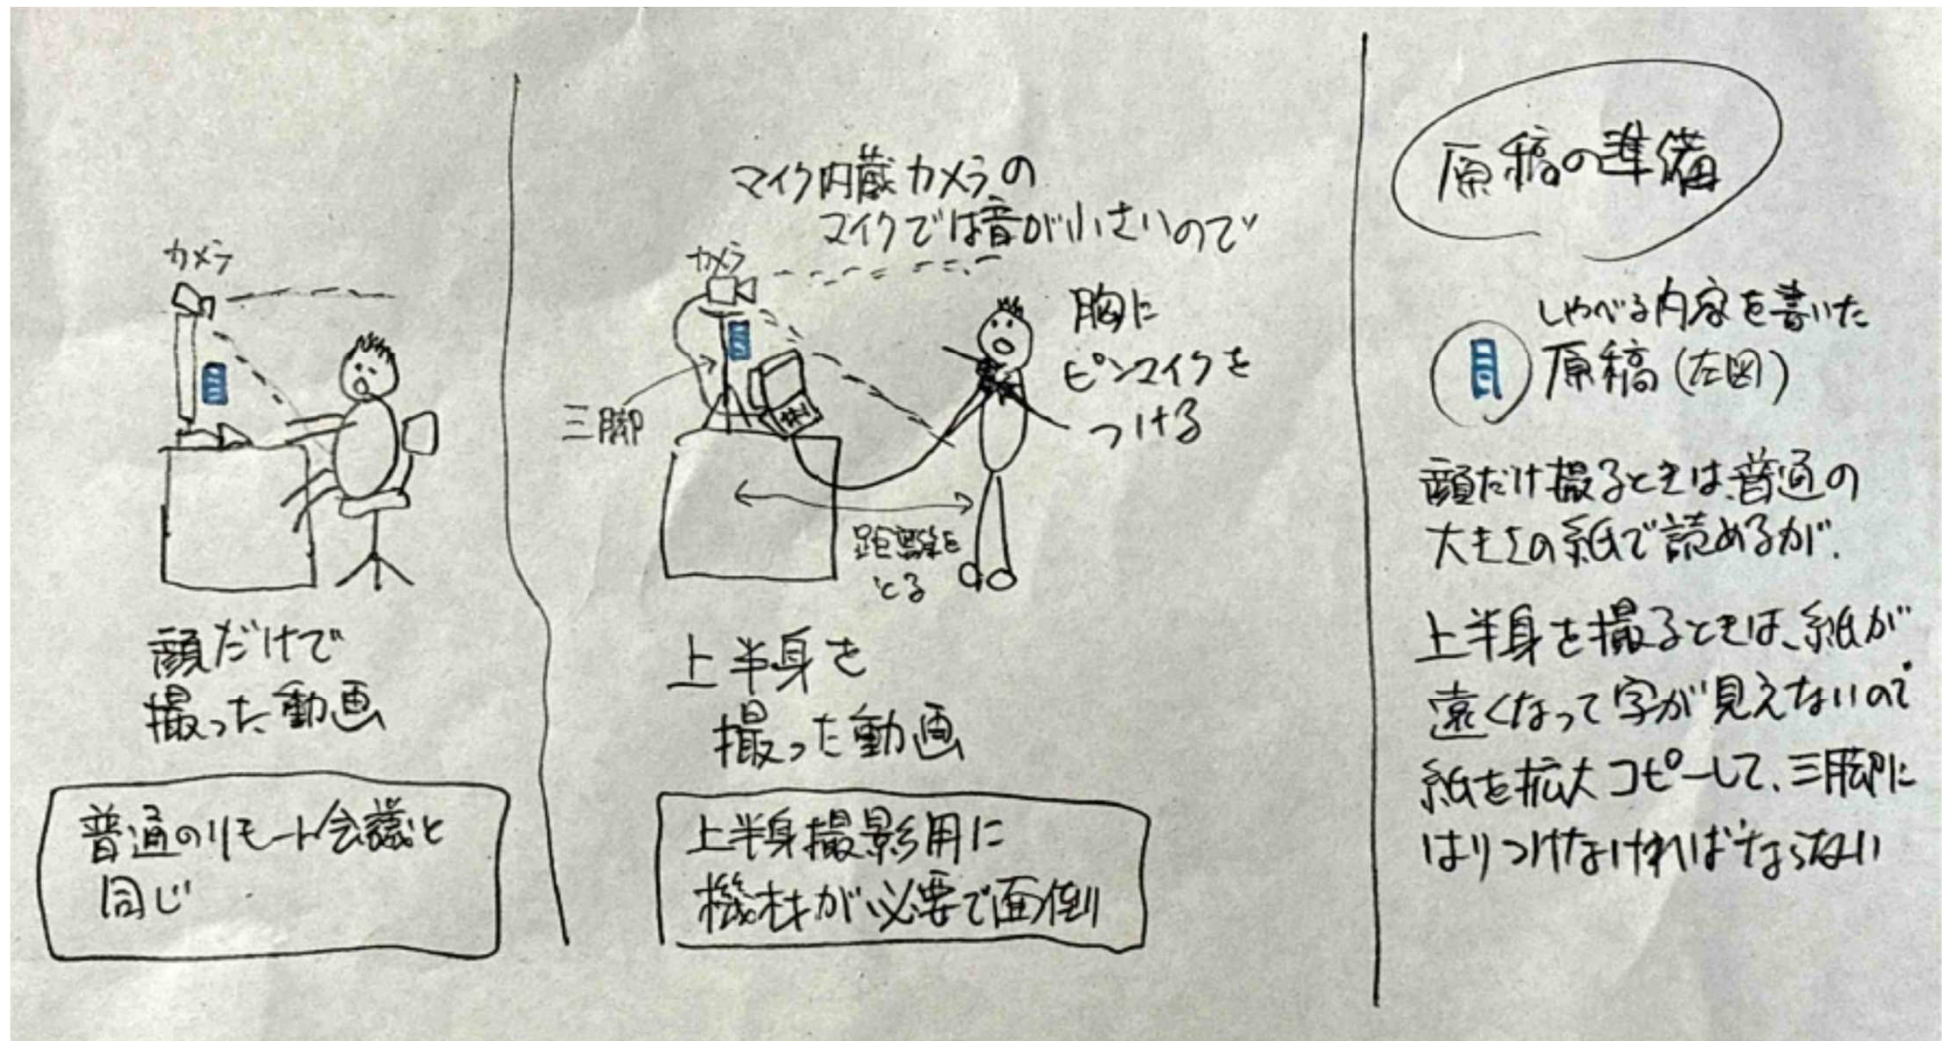 カメラ
顔だけで
撮った動画
普通のリモート会議と
同じ
マイク内蔵カメラの
マイクでは音が小さいので
カメラ
胸に
ピンマイクを
つける
三脚
距離を
とる
上半身を
撮った動画
上半身撮影用に
機材が必要で面倒
原稿の準備
しゃべる内容を書いた
原稿(左図)
顔だけ撮るときは普通の
大きさの紙で読めるが、
上半身を撮るときは、紙が
遠くなって字が見えないので
紙を拡大コピーして、三脚に
はりつけなければならない